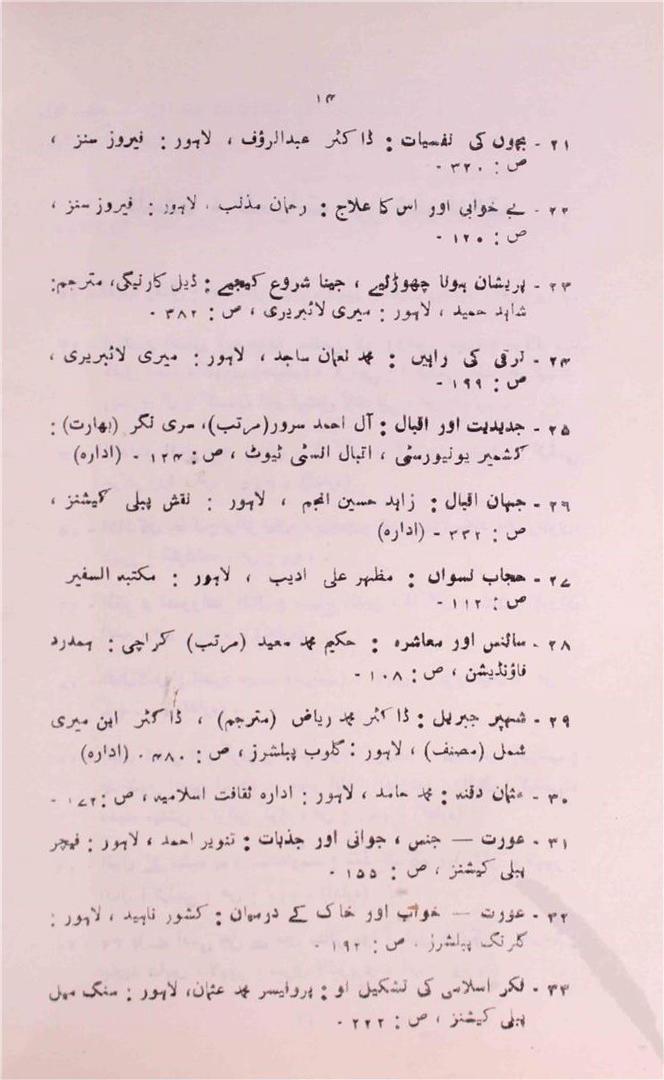 ۱۴
۲۱ - بچوں کی نفسیات : ڈاکٹر عبدالرؤف ، لاہور : فیروز سنز ،
ص : ۳۲۰ -
۲۲ - بے خوابی اور اس کا علاج : رحمان مذنب ، لاہور : فیروز سنز ،
ص : ۱۲۰ -
۲۳ - پریشان ہونا چھوڑئیے ، جینا شروع کیجیے : ڈیل کارنیگی ، مترجم :
شاہد حمید ، لاہور : میری لائبریری ، ص : ۳۸۲ -
۲۴ - ترقی کی راہیں : محمد نعمان ساجد ، لاہور : میری لائبریری ،
ص : ۱۹۹ -
۲۵ - جدیدیت اور اقبال : آل احمد سرور (مرتب) ، سری نگر (بھارت) :
کشمیر یونیورسٹی ، اقبال انسٹی ٹیوٹ ، ص : ۱۲۴ - (ادارہ)
۲۶ - جہان اقبال : زاہد حسین انجم ، لاہور : نقش پبلی کیشنز ،
ص : ۳۳۲ - (ادارہ)
۲۷ - حجاب نسواں : مظہر علی ادیب ، لاہور : مکتبہ السفیر
ص : ۱۱۲ -
۲۸ - سائنس اور معاشرہ : حکیم محمد سعید (مرتب) کراچی : ہمدرد
فاؤنڈیشن ، ص : ۱۰۸ -
۲۹ - شہپر جبریل : ڈاکٹر محمد ریاض (مترجم) ، ڈاکٹر این میری
شمل (مصنف) ، لاہور : گلوب پبلشرز ، ص : ۴۸۰ . (ادارہ)
۳۰ - عثمان دقنہ : محمد حامد ، لاہور : ادارہ ثقافت اسلامیہ ، ص : ۱۷۲ -
۳۱ - عورت — جنس ، جوانی اور جذبات : تنویر احمد ، لاہور : فیچر
پبلی کیشنز ، ص : ۱۵۵ -
۳۲ - عورت — خواب اور خاک کے درمیان : کشور ناہید ، لاہور :
پبلشرز ، ص : ۱۹۲ -
۳۳ - فکر اسلامی کی تشکیل نو : پروفیسر محمد عثمان ، لاہور : سنگ میل
پبلی کیشنز ، ص : ۲۲۲ -